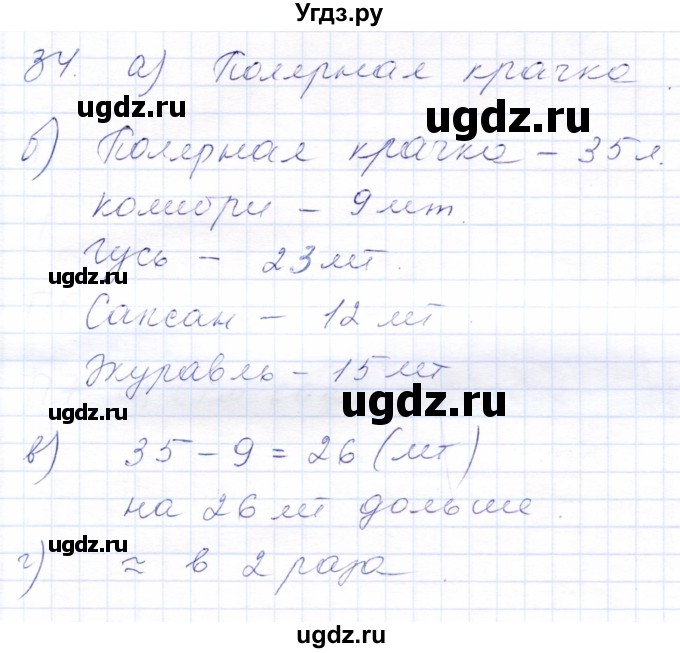 Угдз.ру
34. а) Полярная крачка.
ugdz.ru ugdz.ru
б) Полярная крачка – 35 л.
колибри – 9 лт.
Гусь – 23 лт.
ugdz.ru
Сапсан – 12 лт.
Журавль – 15 лт
ugdz.ru
ugdz.ru
в) 35 – 9 = 26 (лт)
на 26 лт дольше.
ugdz.ru
г) ≈ в 2 раза.
ugdz.ru